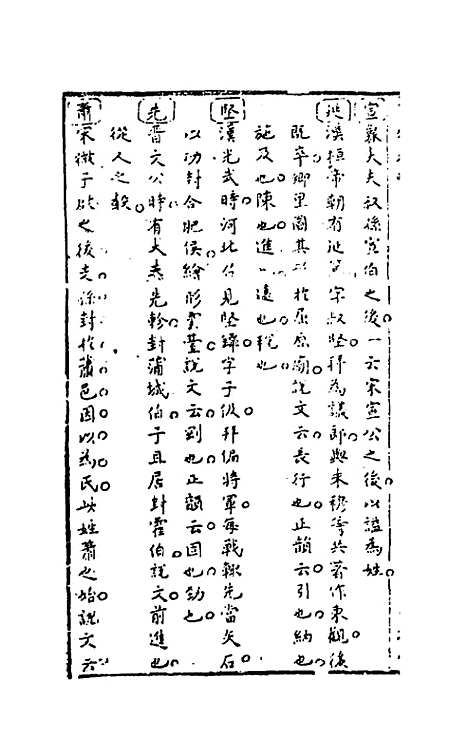 宣魯大夫叔孫宣伯之後一云宋宣公之後以謚為姓
延漢桓帝朝有延篤字叔堅拜為議郎與朱穆等共著作東觀後
既卒鄉里圖其形於屈原廟說文云長行也正韻云引也納也
施及也陳也進也遠也稅也
堅漢光武時河北召見堅鐔字子伋拜偏將軍每戰輒先當矢石
以功封合肥侯繪形雲臺說文云剛也正韻云固也勁也
先晉文公時有大夫先軫封蒲城伯子且居封霍伯說文前進也
從人之
蕭宋微子啟之後支孫封於蕭邑因以為氏此姓蕭之始說文云